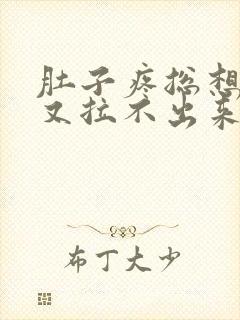 肚子疼总想
又拉不出来
布丁大少